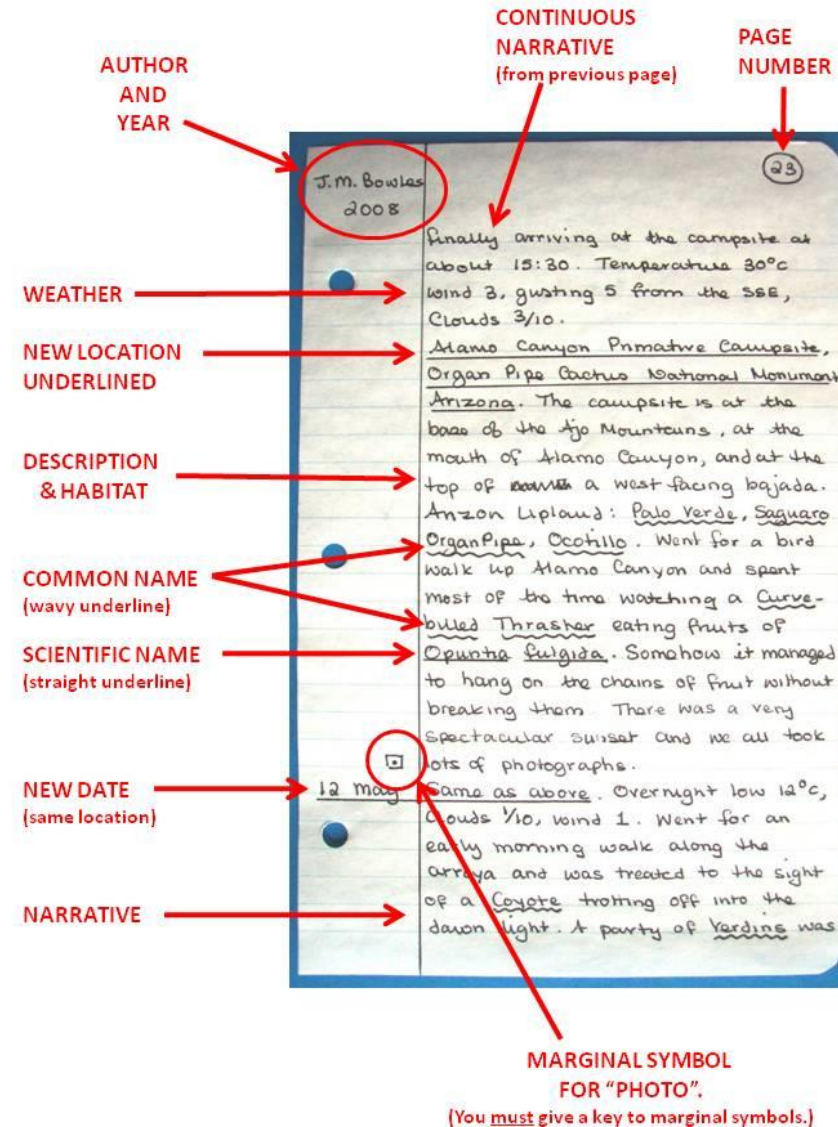 CONTINUOUS
NARRATIVE
(from previous page)
PAGE
NUMBER
AUTHOR
AND
YEAR
WEATHER
NEW LOCATION
UNDERLINED
DESCRIPTION
& HABITAT
COMMON NAME
(wavy underline)
SCIENTIFIC NAME
(straight underline)
NEW DATE
(same location)
NARRATIVE
J.M. Bowles
2008
23
finally arriving at the campsite at
about 15:30. Temperature 30°C
wind 3, gusting 5 from the SSE,
Clouds 3/10.
Alamo Canyon Primative Campsite,
Organ Pipe Cactus National Monument
Arizona. The campsite is at the
base of the Ajo Mountains, at the
mouth of Alamo Canyon, and at the
top of a west facing bajada.
Upland: Palo Verde, Saguaro
Organ Pipe, Ocotillo. Went for a bird
walk up Alamo Canyon and spent
most of the time watching a Curve-
billed Thrasher eating fruits of
Opuntia fulgida. Somehow it managed
to hang on the chains of fruit without
breaking them There was a very
spectacular sunset and we all took
lots of photographs.
12 may Same as above. Overnight low 12°C,
Clouds 1/10, wind 1. Went for an
early morning walk along the
arroya and was treated to the sight
of a Coyote trotting off into the
dawn light. A party of Verdins was
MARGINAL SYMBOL
FOR "PHOTO".
(You must give a key to marginal symbols.)